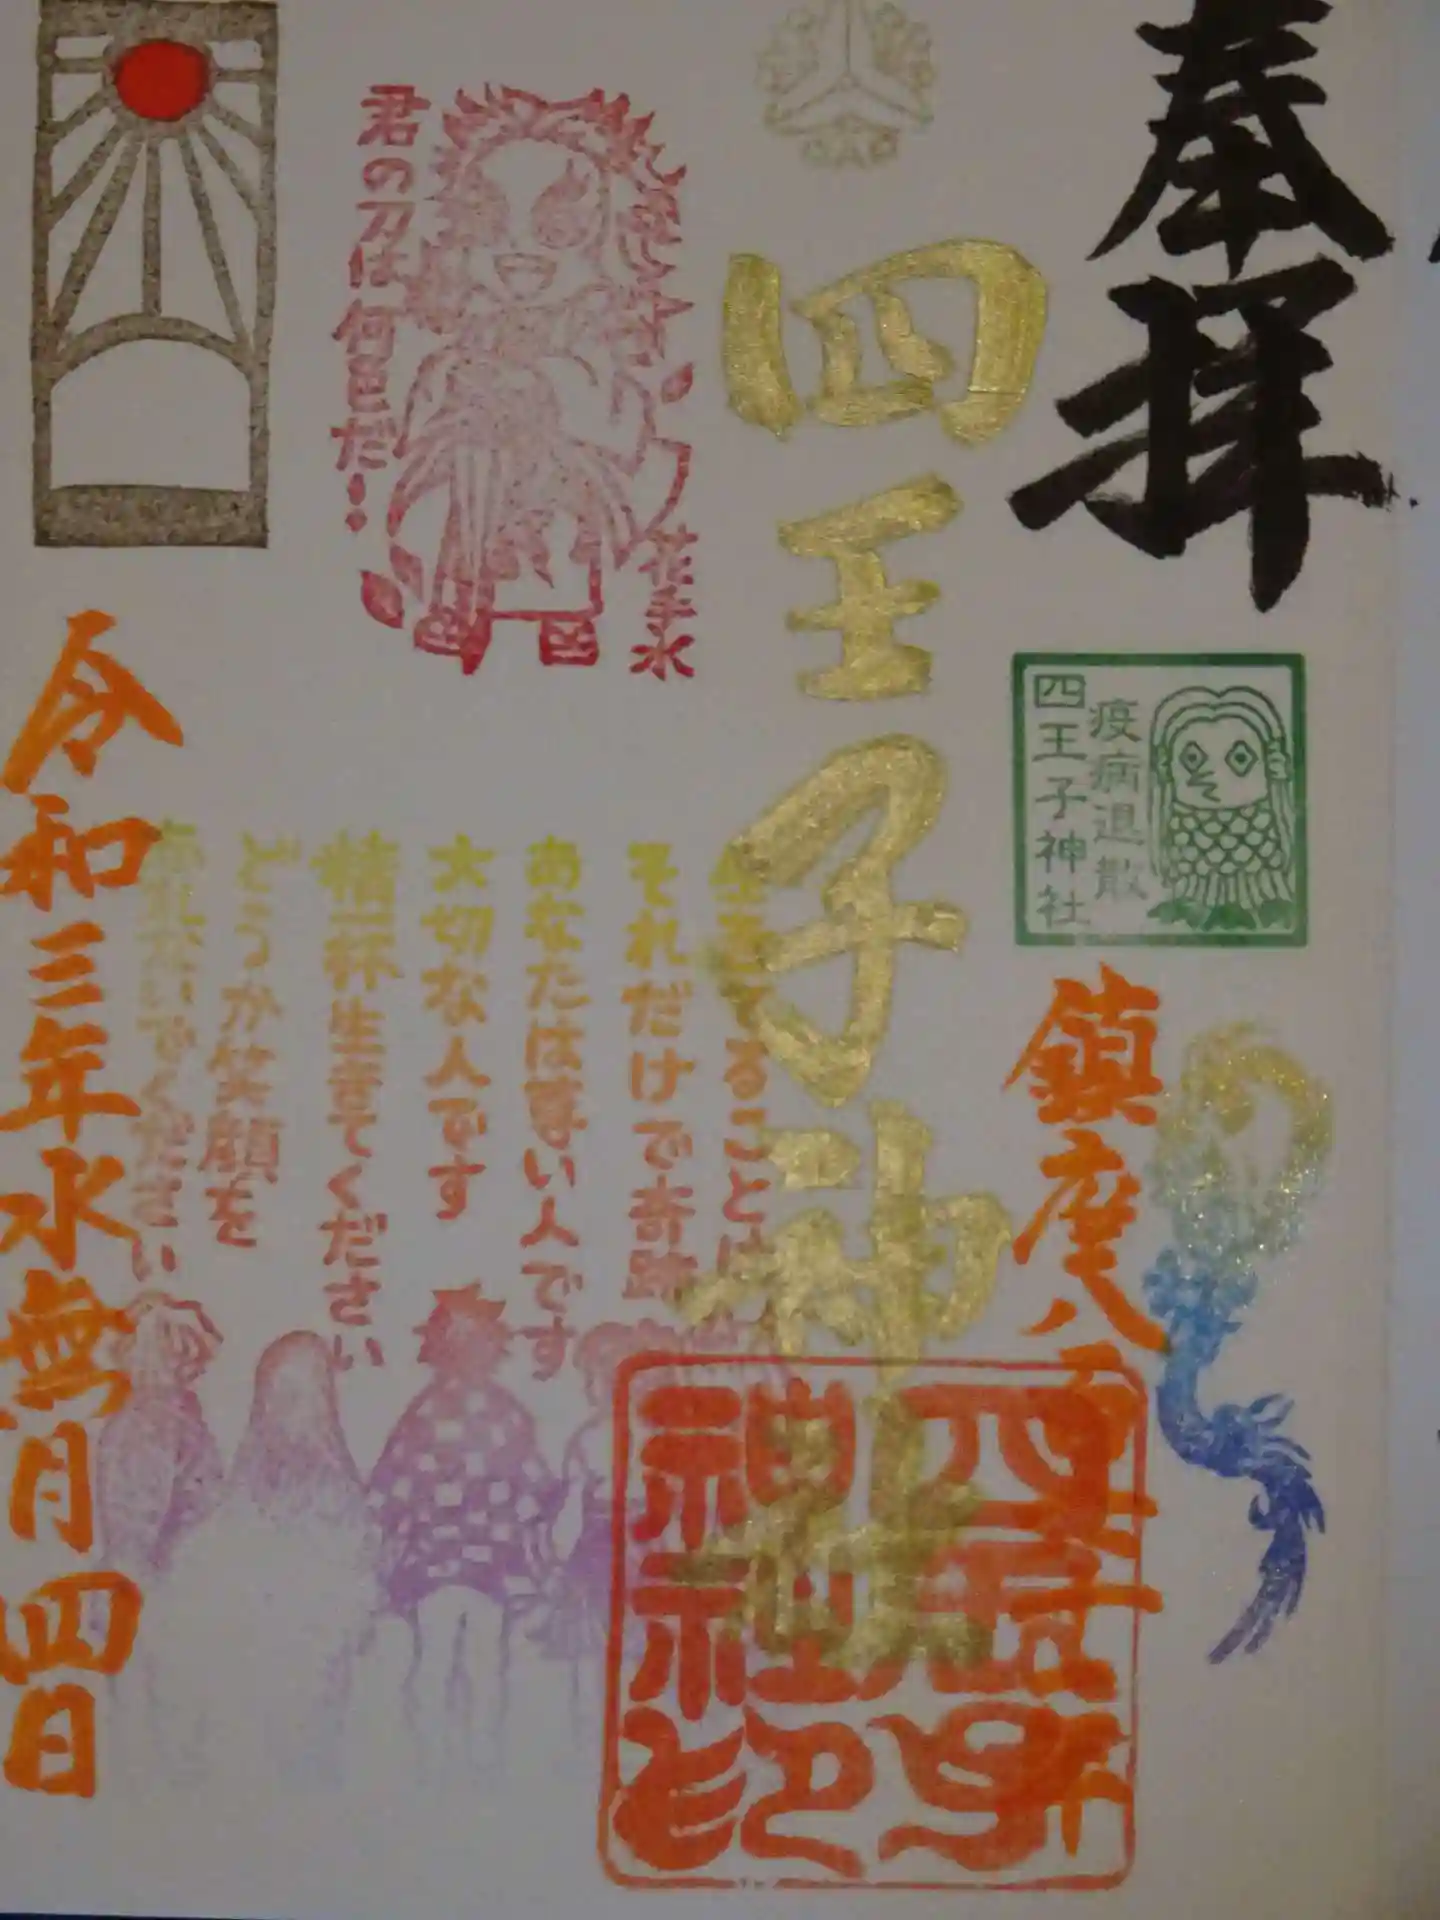 奉拝
疫病退散
四王子神社
鎮座八百五十年
四王子神社
四王子
神社
君の刀は何色だ!
花手水
それだけで奇跡
あなたは尊い人です
大切な人です
精一杯生きてください
どうか笑顔を
忘れないでください
令和三年水無月四日